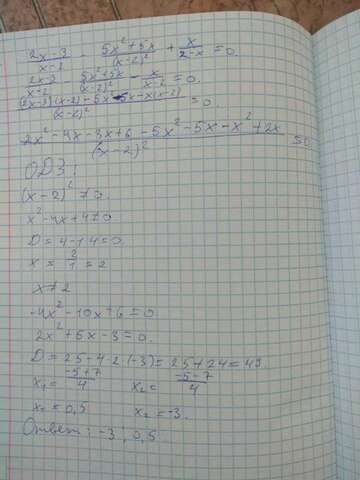 (2x-3)/(x-2) - (5x²+5x)/(x-2)² + x/(2-x) = 0.
(2x-3)/(x-2) - (5x²+5x)/(x-2)² - x/(x-2) = 0.
((2x-3)(x-2) - 5x² - 5x - x(x-2))/(x-2)² = 0.
(2x² - 4x - 3x + 6 - 5x² - 5x - x² + 2x)/(x-2)² = 0
ОДЗ:
(x-2)² ≠ 0.
x² - 4x + 4 ≠ 0
D = 4 - 1·4 = 0.
x = 2/1 = 2
x ≠ 2
-4x² - 10x + 6 = 0.
2x² + 5x - 3 = 0.
D = 25 - 4·2·(-3) = 25 + 24 = 49.
x₁ = (-5+7)/4 x₂ = (-5-7)/4
x₁ = 0,5 x₂ = -3.
Ответ: -3; 0,5